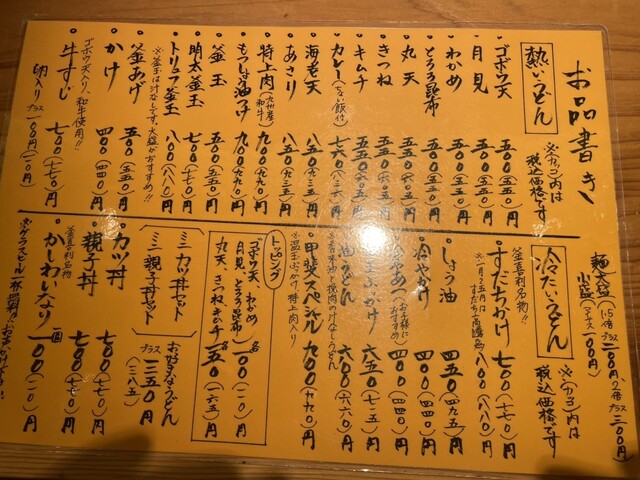 お品書き
熱いうどん
※(カッコ)内は
税込価格です
ゴボウ天 五〇〇(五五〇)円
月見 五〇〇(五五〇)円
わかめ 五〇〇(五五〇)円
とろろ昆布 五〇〇(五五〇)円
丸天
きつね
キムチ
カレー(ちょい飯付)
海老天 八五〇(九三五)円
あさり 八五〇(九三五)円
特上肉(九州産和牛) 九〇〇(九九〇)円
もつしょ油つけ 九〇〇(九九〇)円
釜玉 五〇〇(五五〇)円
明太釜玉 七〇〇(七七〇)円
トリュフ釜玉 八〇〇(八八〇)円
※釜玉は汁なしです。大盛がおすすめ!!
釜あげ 五〇〇(五五〇)円
かけ 四〇〇(四四〇)円
牛すじ 七〇〇(七七〇)円
ゴボウ天入り、和牛使用!!
卵入り プラス一〇〇円(一一〇円)
麺大盛(1.5倍プラス一〇〇円、2倍プラス二〇〇円)
小盛(マイナス一〇〇円)
冷たいうどん
※(カッコ)内は
税込価格です
釜喜利名物!!
すだちかけ 七〇〇(七七〇)円
八〇〇(八八〇)円
しょう油 四五〇(四九五)円
冷やかけ 四〇〇(四四〇)円
四〇〇(四四〇)円
ぶっかけ 六五〇(七一五)円
油うどん 六〇〇(六六〇)円
甲斐スペシャル 九〇〇(九九〇)円
※温玉ぶっかけ、特上肉入り
トッピング
ゴボウ天 わかめ
月見 とろろ昆布 各一〇〇(一一〇)円
丸天 きつね キムチ 各一五〇(一六五)円
ミニカツ丼セット
ミニ親子丼セット
お好きなうどん
プラス三五〇円
(三八五)
カツ丼 七〇〇(七七〇)円
親子丼 七〇〇(七七〇)円
釜喜利名物
かしわいなり 一個一〇〇(一一〇)円